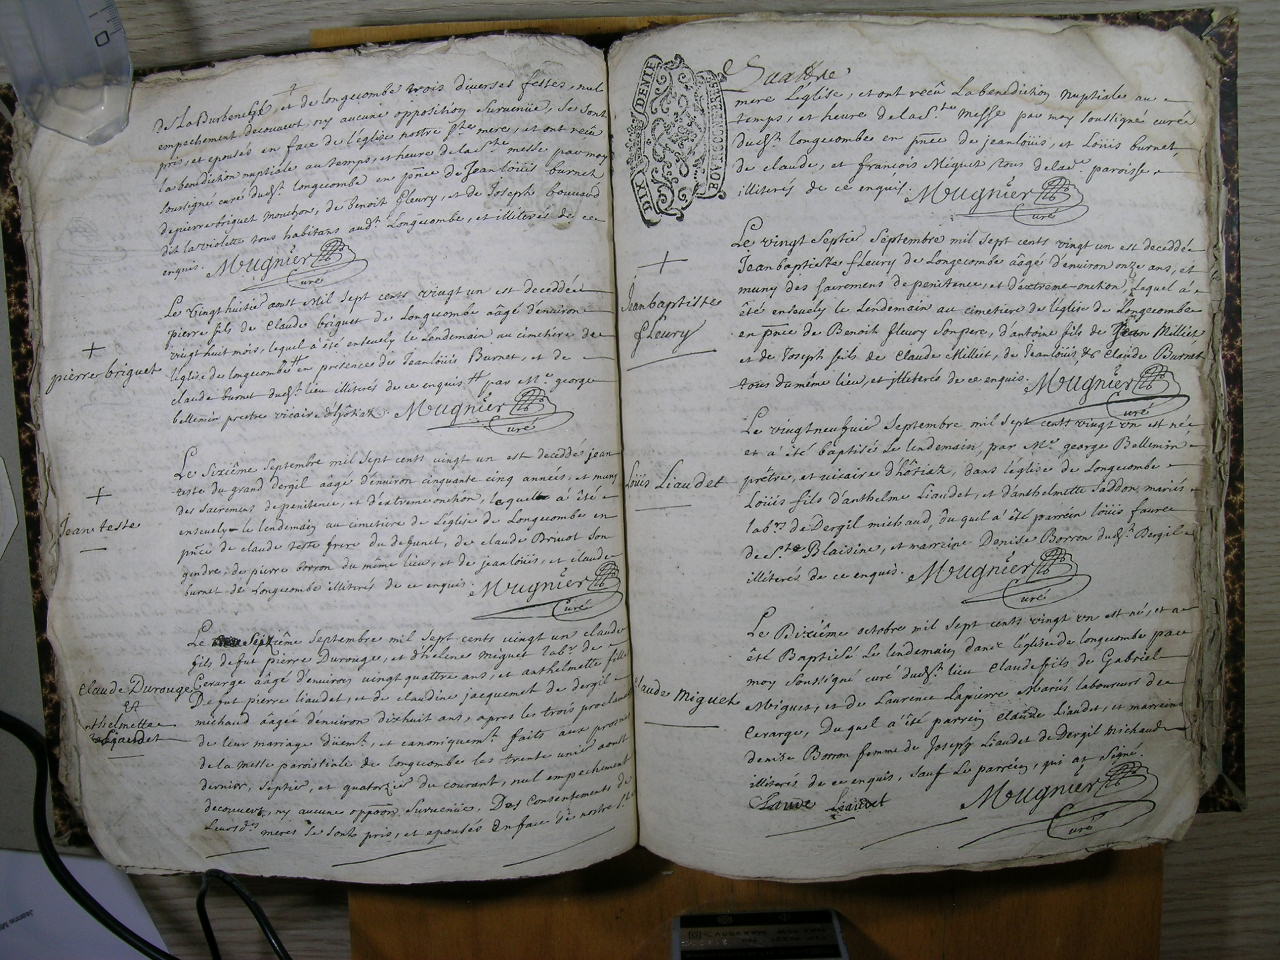 de longecombe trois diverses festes, nul
empechement decouvert, ny aucune opposition survenüe, se sont
pris, et epousés en face de l'église nostre ste mere, et ont recu
la benediction nuptiale au temps, et heure de la ste messe par moy
soussigné curé dudt longecombe en pnce de Jeanloüis burnet
de pierre briguet mouchon, de benoit fleury, et de Joseph bouvard
dit la violette tous habitans audt Longecombe, et illiterés de ce
enquis. Mugnier
Curé
pierre briguet
Le vingthuitie aoust Mil sept cents vingt un est deceddé
pierre fils de Claude briguet de Longecombe aâgé d'environ
vingt huit mois, lequel a été ensevely le Lendemain au cimetiere de
l'église de longecombe en présence de Jeanloüis Burnet, et de
claude burnet dudt lieu illiterés de ce enquis par Mre george
bellemin prestre vicaire d'hostiaz. Mugnier
Curé
Jean teste
Le Sixiême Septembre mil sept cents vingt un est deceddé jean
teste du grand dergil aâgé d'environ cinquante cinq années, et muny
des sacremens de penitence, et d'extreme onction, lequel a été
ensevely le lendemain au cimetiere de L'église de Longecombe en
pnce de claude teste frere du defunct, de claude Bruvot son
gendre, de pierre borron du même lieu, et de jeanloüis, et claude
burnet de Longecombe illiterés de ce enquis. Mugnier
Curé
Claude Durouge
et
anthelmette
Liaudet
Le Septembre mil sept cents vingt un claude
fils de fut pierre Durouge, et d'helene miguet Labr. de
Cerarge aâgé d'environ vingt quatre ans, et anthelmette fille
De fut pierre liaudet, et de claudine jacquemet de dergil
michaud aâgée d'environ dixhuit ans, apres les trois proclamã
de leur mariage düent, et canoniquemt faits aux prosnes
de la messe paroissiale de longecombe les trente unie aoust
dernier, septie, et quatorzie du courant, nul empechement
decouvert, ny aucune oppoon survenüe, Des Consentements de
Leurs dts meres se sont pris, et epousés En face de nostre Ste
DIX DENIE
BOURG
mere L'église, et ont recû La benediction nuptiale au
temps, et heure de la Ste Messe par moy soussigné curé
dudt longecombe en pnce de jeanloüis, et Loüis burnet,
de claude, et francois Miguet, tous de lad. paroisse
illiterés de ce enquis. Mugnier
Curé
Jean baptiste
fleury
Le vingt Septie Septembre mil sept cents vingt un est deceddé
Jeanbaptiste fleury de Longecombe aâgé d'environ onze ans, et
muny des sacremens de penitence, et d'extrême onction, Lequel a
été ensevely le Lendemain au cimetiere de l'église de Longecombe
en pnce de Benoit fleury son pere, d'antoine fils de Jean Milliet
et de Joseph fils de claude Milliet, de Jeanloüis, & Claude Burnet
tous du même lieu, et illiterés de ce enquis. Mugnier
Curé
Loüis Liaudet
Le vingtneufvie Septembre mil sept cents vingt un est né
et a été baptisé le lendemain, par Mre george Bellemin
prêtre, et vicaire d'hôtiaz, dans l'église de Longecombe
Loüis fils d'anthelme Liaudet, et d'anthelmette Laddon mariés
labrs. de Dergil michaud, du quel a été parrein loüis favre
de Ste Blaisine, et marreine Denise Borron dudt Dergil
illiterés de ce enquis. Mugnier
Curé
Claude Miguet
Le Dixiême octobre mil sept cents vingt un est né, et a
été Baptisé Le lendemain dans l'église de longecombe par
moy soussigné curé dudt lieu Claude fils de Gabriel
Miguet, et de Laurence Lapierre Mariés laboureurs de
Cerarge, Du quel a été parrein claude Liaudet, et marreine
denise Borron femme de Joseph Liaudet de Dergil michaud
illiterés de ce enquis, sauf Le parrein, qui a signé.
Liaudet Mugnier
Curé